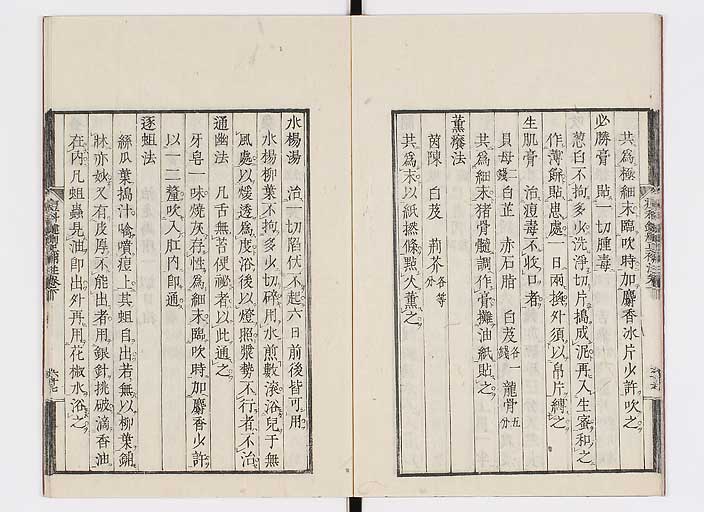 共爲極細末臨吹時加麝香冰片少許吹之
必勝膏 貼一切腫毒
葱白不拘多少洗淨切片搗成泥再入生蜜和之
作薄餅貼患處一日兩換外須以帛片縛之
生肌膏 治痘毒不收口者
貝母二錢白芷 赤石脂 白芨各一錢龍骨五分
共爲細末猪骨髓調作膏攤油紙貼之
薰癢法
茵陳 白芨 荊芥各等分
共爲末以紙撚條點火薰之
水楊湯 治一切陷伏不起六日前後皆可用
水楊柳葉不拘多少切碎用水煎數滚浴兒于無
風處以煖透爲度浴後以燈照漿勢不行者不治
通幽法 凡舌無苔便祕者以此通之
牙皂一味燒灰存性爲細末臨吹時加麝香少許
以一二釐吹入肛內即通
逐蛆法
絲瓜葉搗汁噙噴痘上其蛆自出若無以柳葉鋪
牀亦妙又有皮厚不能出者用銀針挑破滴香油
在內凡蛆蟲見油即出外再用花椒水浴之